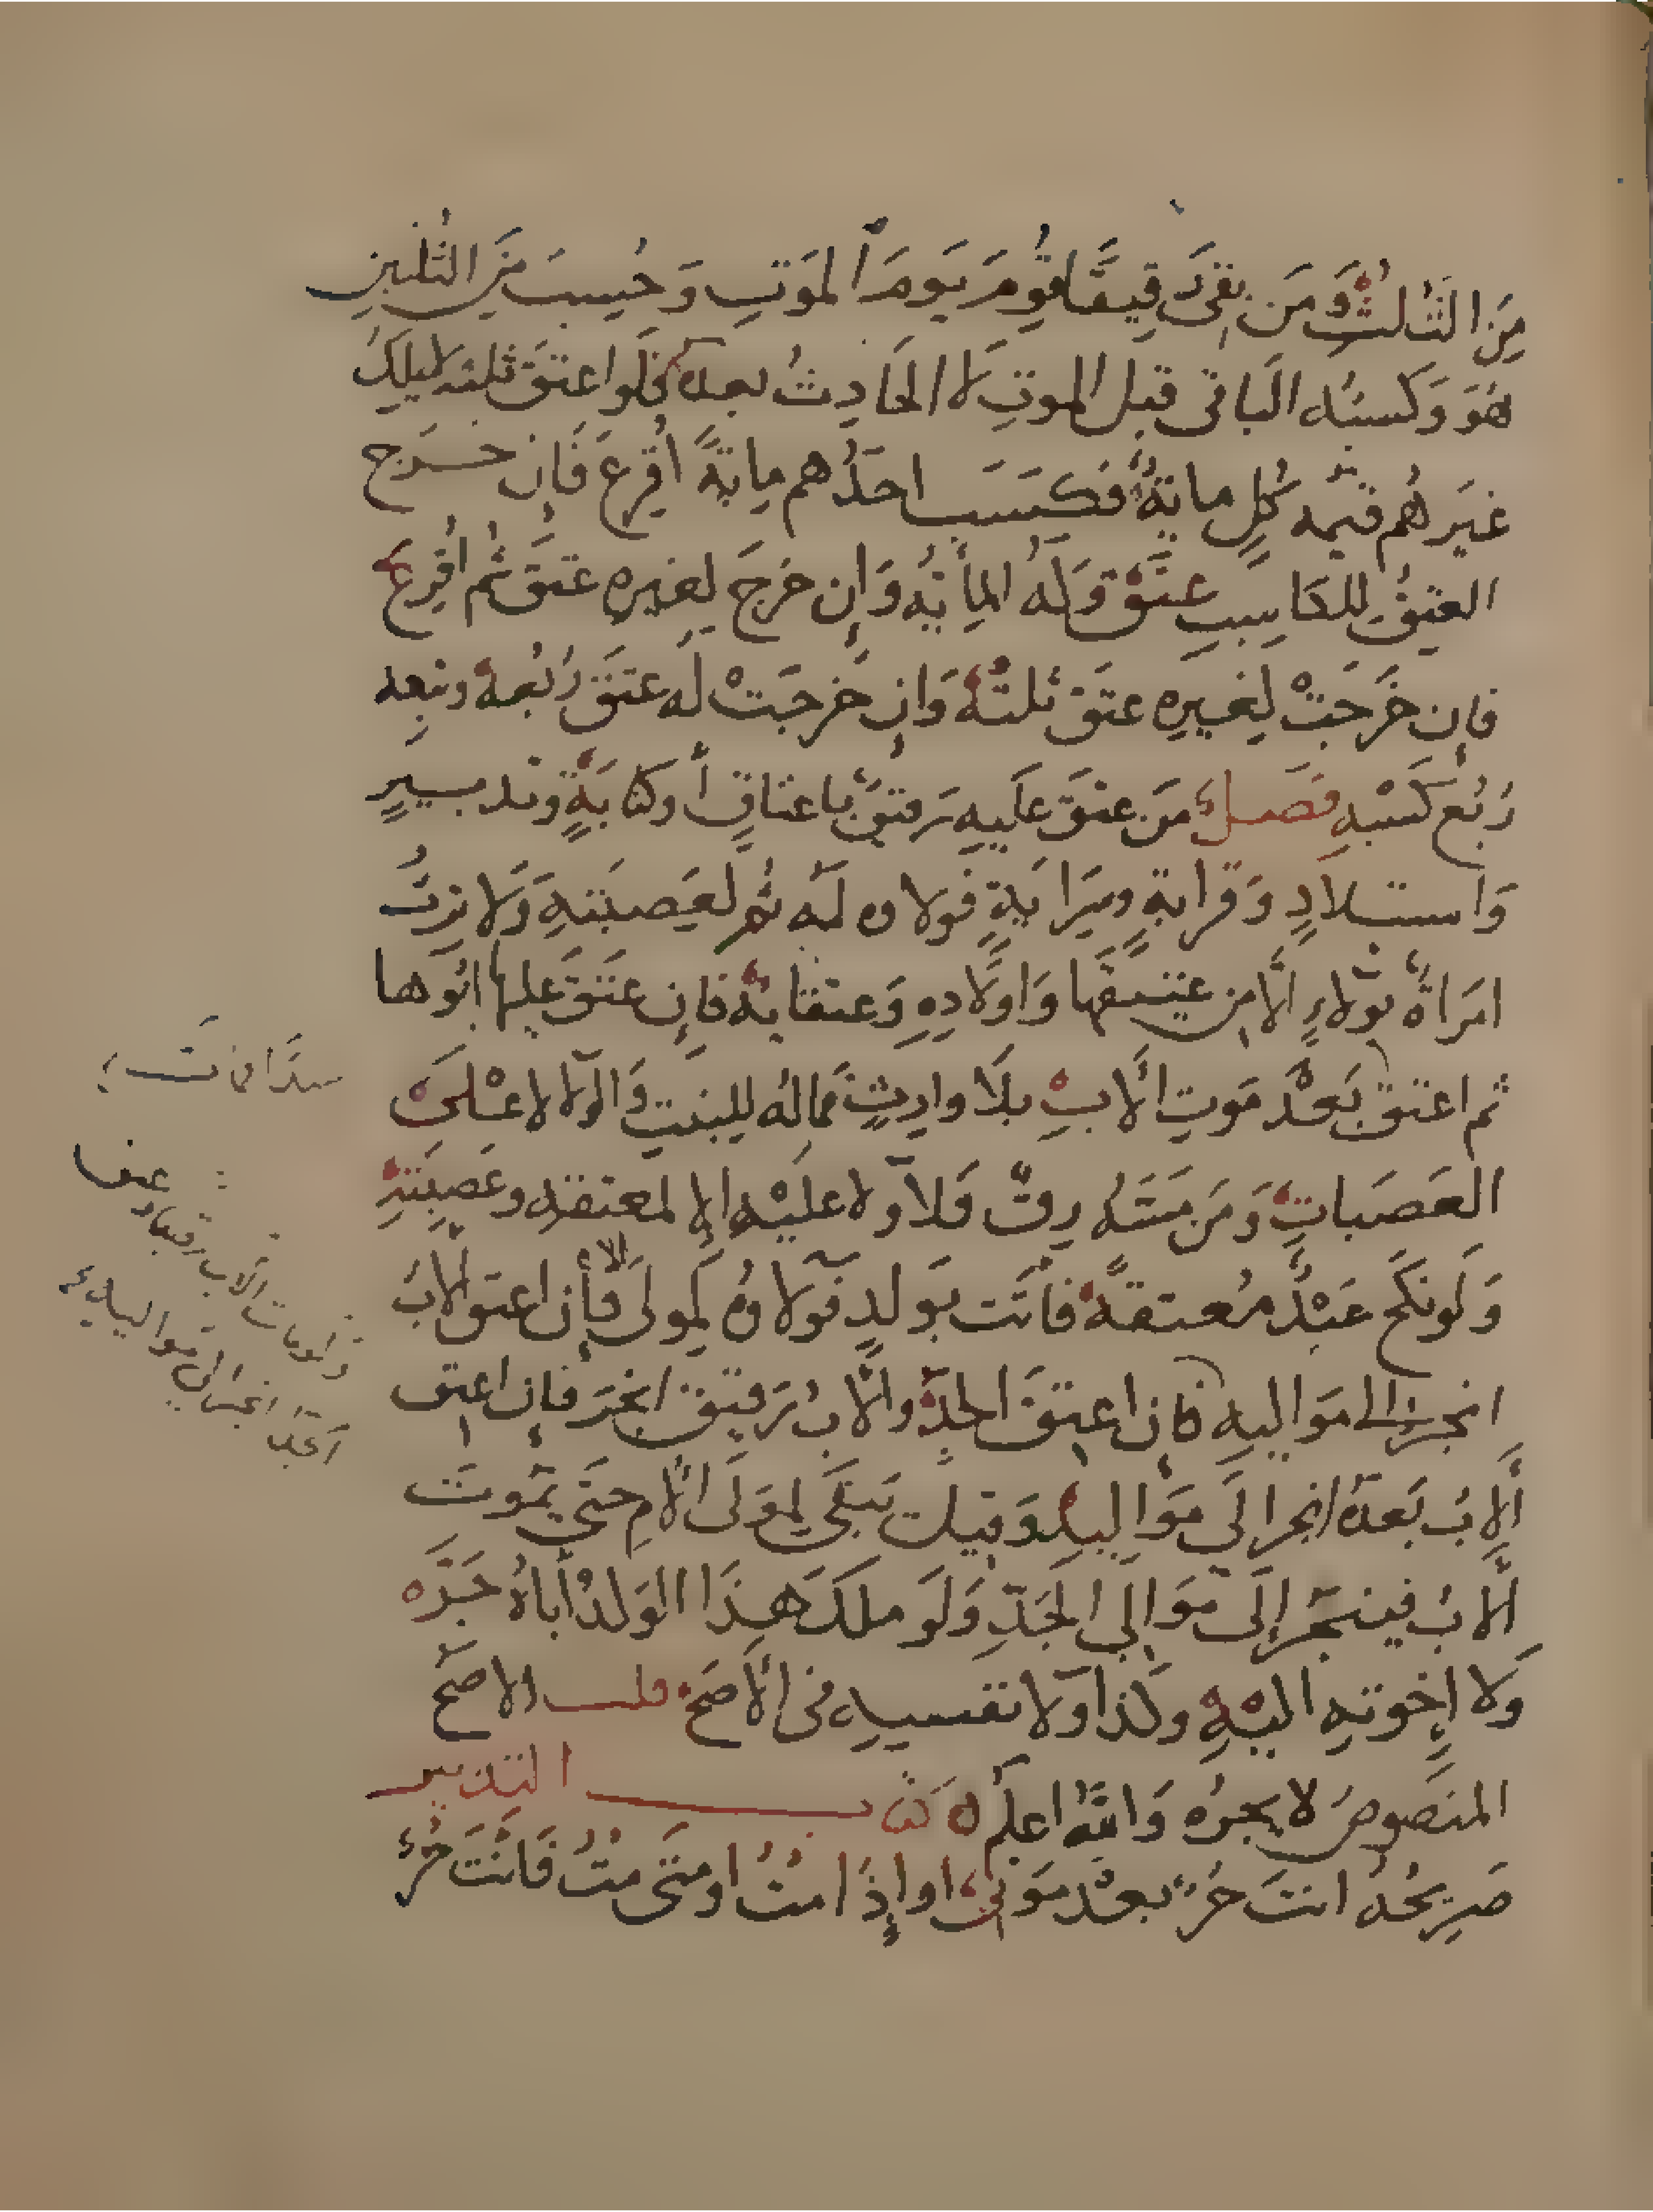 مِنَ الثُلثِ وَمَن بقىَ رَقِيقًا قُوِمَ يَومَ المَوتِ وَحُسِبَ مِنَ الثُلثينِ
هُوَ وَكسبُه البَاقى قبل الموتِ لا الحَادِثُ بعدهُ فلَو اعتقَ ثلثه لا يملكُ
غيَرهُم قيمَه كُلٍ مايةُ فكسَبَ احدُهم مِايةً أُقرِعَ فَإن خرج
العِتقُ للكاسِبِ عتَقَ وَلَهُ المِأيهُ وَإن خرجَ لِغيرهِ عتقَ ثُم اقُرِعَ
فإن خَرَجَتْ لِغيرِهِ عتَقَ ثلثهُ وَإن خرجَتْ له عتَقَ رُبُعهُ وتبِعه
رُبُع كَسْبهِ فصل مَن عتَقَ عَليهِ رَقيقٌ باعتاقٍ أوكتابَةٍ وتدبيرٍ
وَاستيلادٍ وَقرابةٍ وسِرَايةٍ فولاوه لَهُ ثُم لعَصبَتهِ وَلا ترِثُ
امَراةٌ بوَلاءٍ الَّا مِن عتيقهَا وَاولَادِهِ وَعتقايهُ فإن عتَقَ عليها ابُوهَا
ثم اعتق بَعْدَ مَوتِ الأبِ بلَا وارِثٍ فمالهُ للبنتِ وَالولا لاعْلَى
العَصَباتِ وَمَن مَسَّهُ رِقٌ فلاَ ولا عليْه إلا لمعتقه وعَصبَتهِ
وَلَونكَحَ عَبْدٌ مُعتقةً فاتَت بَولدٍ فولاوهُ لِمولَى الام فإن اعتق الابُ
انجرَ الى مَواليهِ فإن اعتِقَ الجدُ والابُ رَقيق انجرَ فإن اعتِق
الابُ بَعدهُ انجرا لَى مَواليهِ وَقيل يَبقَى لِمولَى الأمِ حتى يَموتَ
الابُ فينجَر إلَى مَوالى الجَدِّ وَلَو ملكَ هذَا الوَلدُ أباهُ جَرَّه
وَلا إخوتهِ اليْهِ وكذا وَلا نفسِه فى الأصَحِ قلت الاصَحُ
المنصَوصُ لا يجرُه وَاللهُ اعلَم كتاب التدبير
صَرِيحُهُ انتَ حُرٌ بعْدَ مَوتى اوإذا مُتُ اومتَى مُتُ فَانتَ حُرٌ
سيدَا فماتَ
وَلومات الاب رقيقا وعتق
الجَدّ انجر الى مَواليه